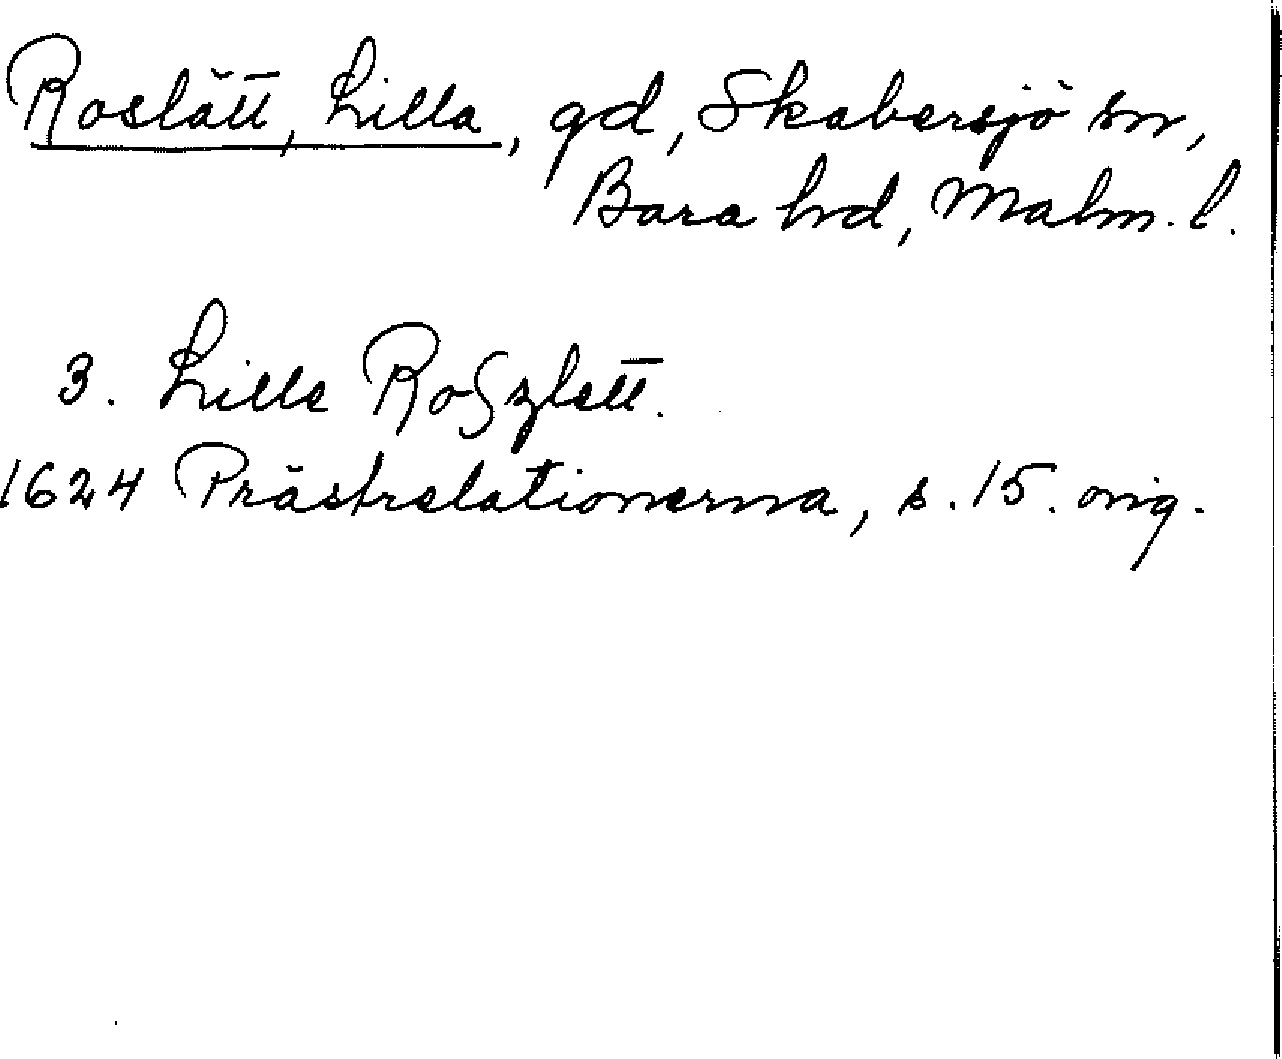 Roslätt, Lilla, gd, Skabersjö sn,
Bara hd, Malm. l.
3. Lille Roſzlett.
1624 Prästrelationerna, s. 15. orig.